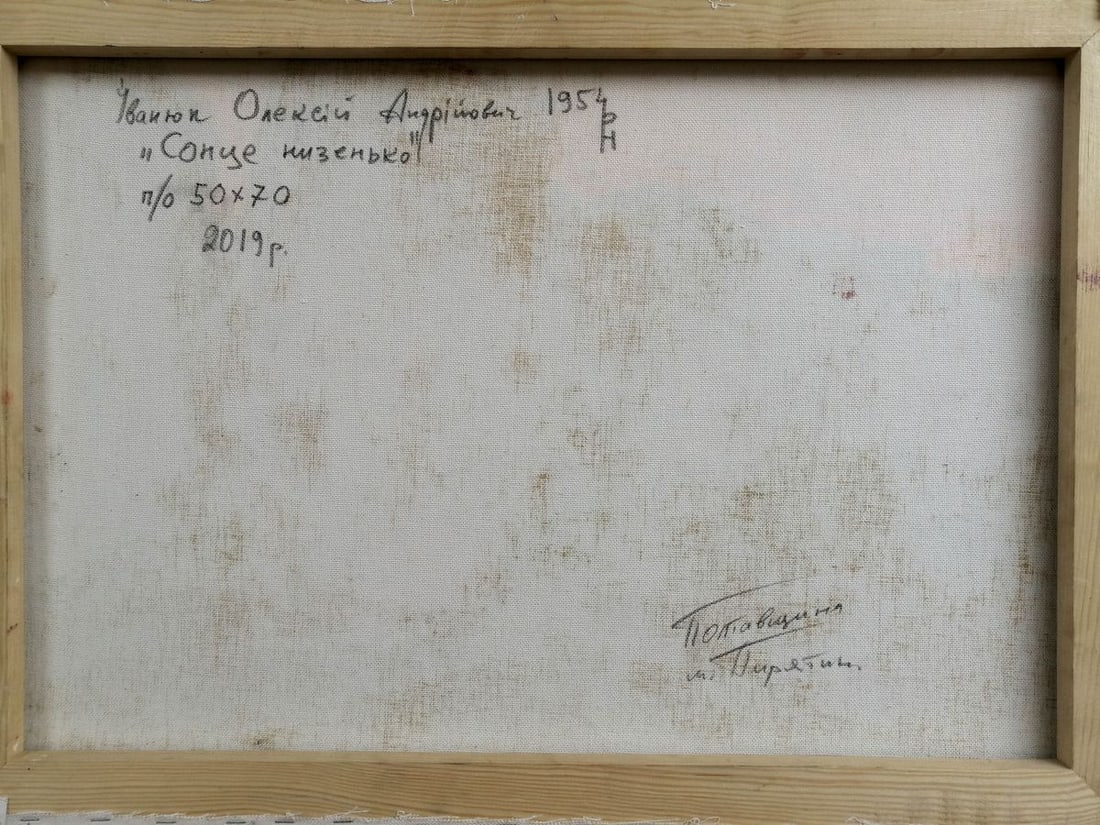 Іванюк Олексій Андрійович 1954 рн
„Сонце низенько"
п/о 50х70
2019р.
Полтавщина
м. Пирятин.